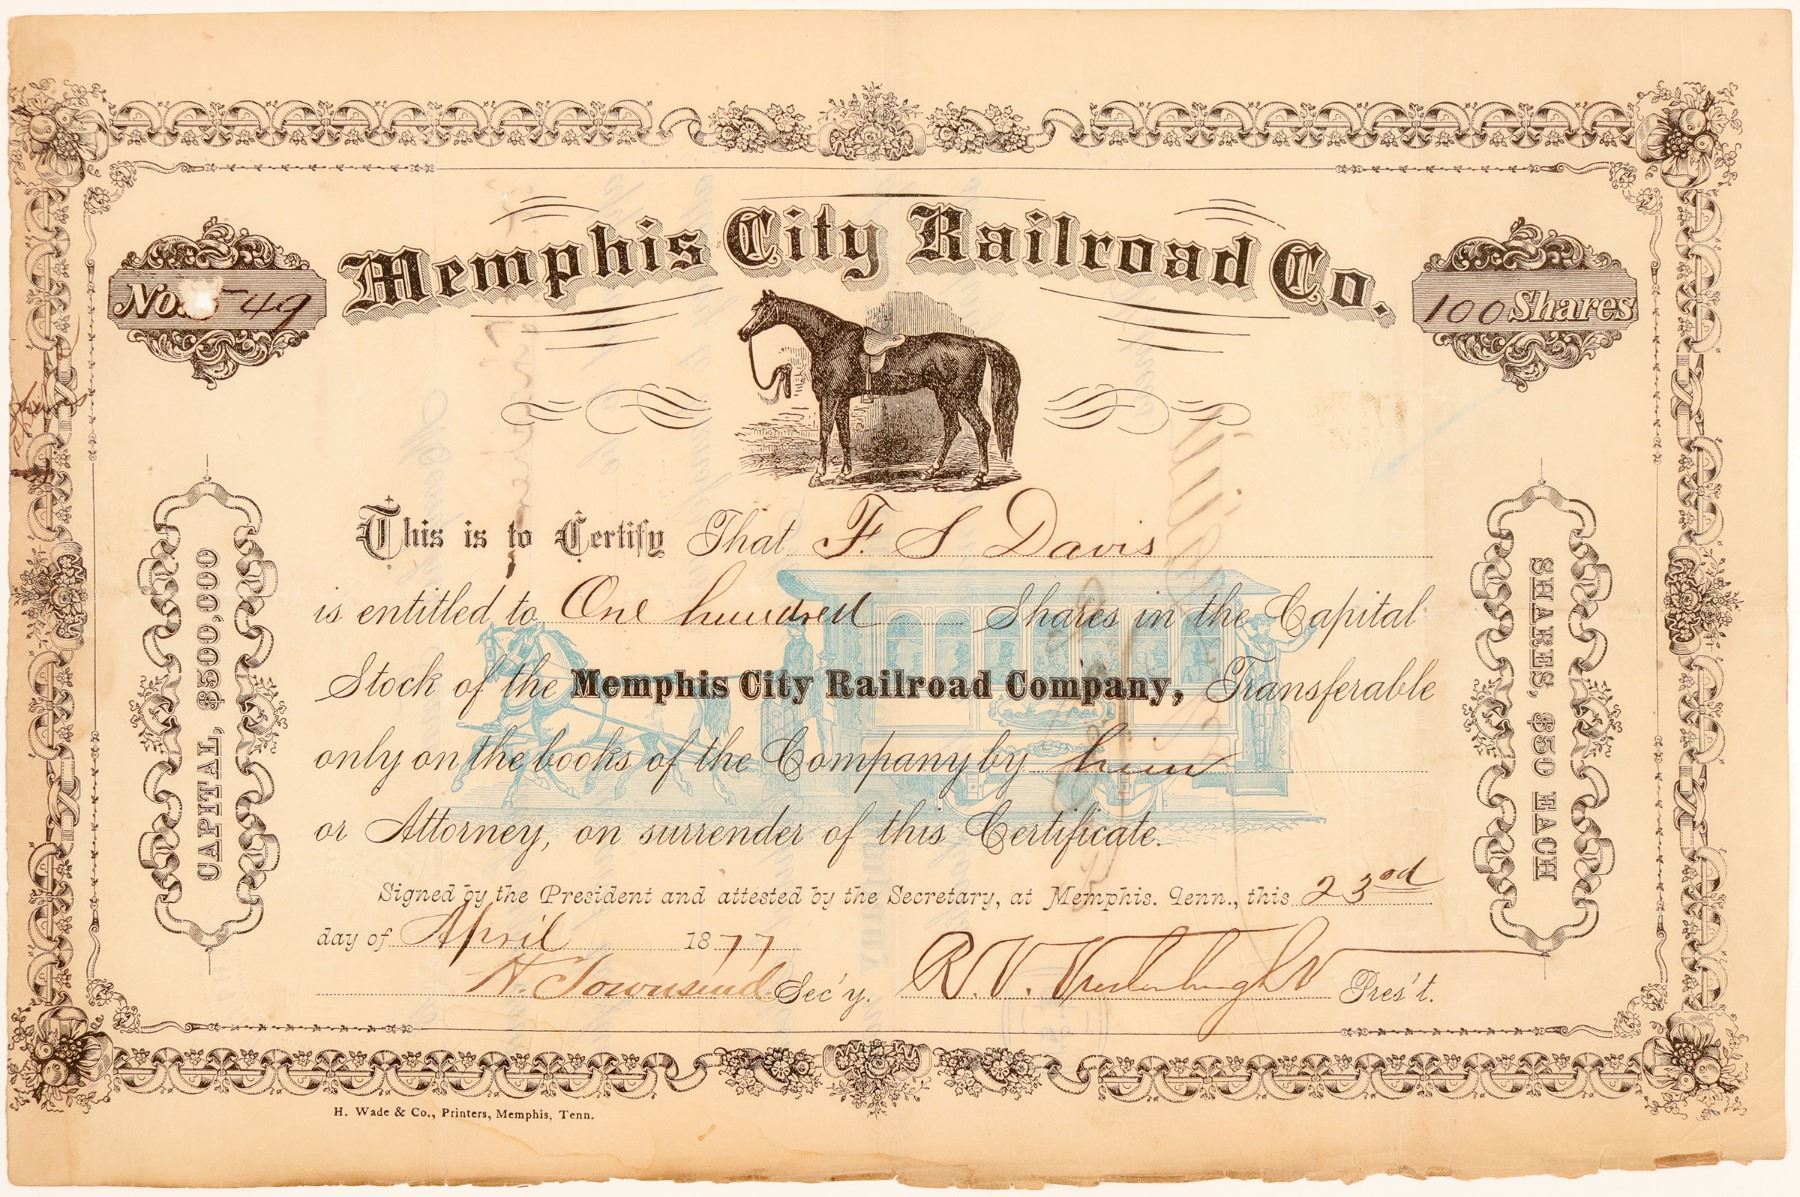 Memphis City Railroad Co.
No. 549
100 Shares
This is to Certify That F. S Davis
is entitled to One hundred Shares in the Capital
Stock of the Memphis City Railroad Company, Transferable
only on the books of the Company by him
or Attorney, on surrender of this Certificate.
Signed by the President and attested by the Secretary, at Memphis. Tenn., this 23rd
day of April 1877
H. Townsend Sec'y. R. V. Pres't.
CAPITAL, $500,000
SHARES, $50 EACH
H. Wade & Co., Printers, Memphis, Tenn.